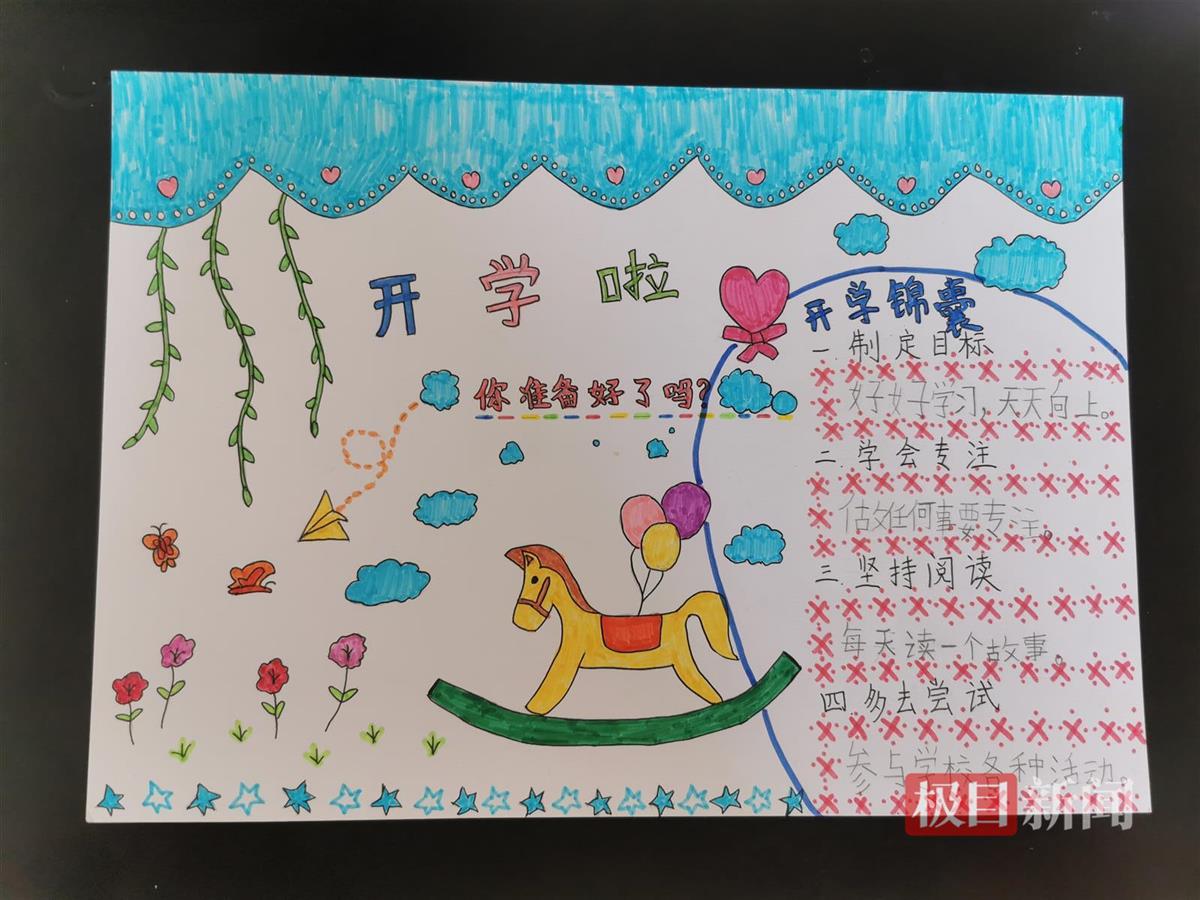 开学啦
你准备好了吗?
开学锦囊
一.制定目标
好好学习,天天向上。
二.学会专注
做任何事要专注。
三.坚持阅读
每天读一个故事。
四多去尝试
参与学校各种活动。
极目新闻